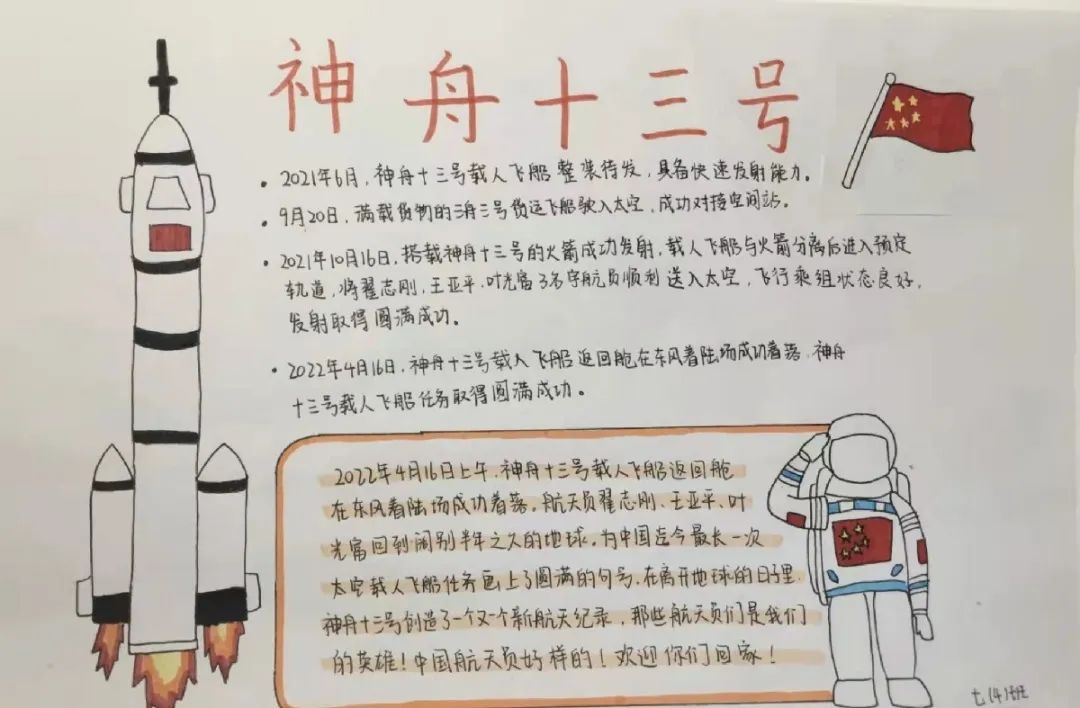 神舟十三号
• 2021年6月，神舟十三号载人飞船整装待发，具备快速发射能力。
• 9月20日，满载货物的三舟三号货运飞船驶入太空，成功对接空间站。
• 2021年10月16日，搭载神舟十三号的火箭成功发射，载人飞船与火箭分离后进入预定
轨道，将翟志刚，王亚平，叶光富3名宇航员顺利送入太空，飞行乘组状态良好，
发射取得圆满成功。
• 2022年4月16日，神舟十三号载人飞船返回舱在东风着陆场成功着落，神舟
十三号载人飞船任务取得圆满成功。
2022年4月16日上午，神舟十三号载人飞船返回舱
在东风着陆场成功着落。航天员翟志刚、王亚平、叶
光富回到阔别半年之久的地球，为中国迄今最长一次
太空载人飞船任务画上了圆满的句号，在离开地球的日子里
神舟十三号创造了一个又一个新航天纪录，那些航天员们是我们
的英雄！中国航天员好样的！欢迎你们回家！
七（4）班